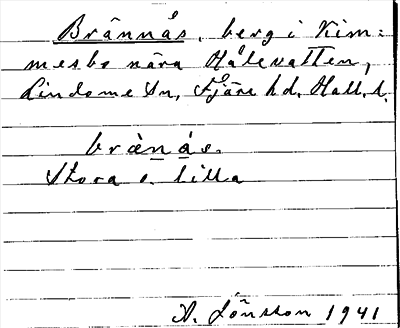 Brännås, berg i Kim=
mesbo nära Hålevatten,
Lindome sn, Fjäre hd. Hall. l.
brä̀nǻs.
Stora o. lilla
A. Jönsson 1941